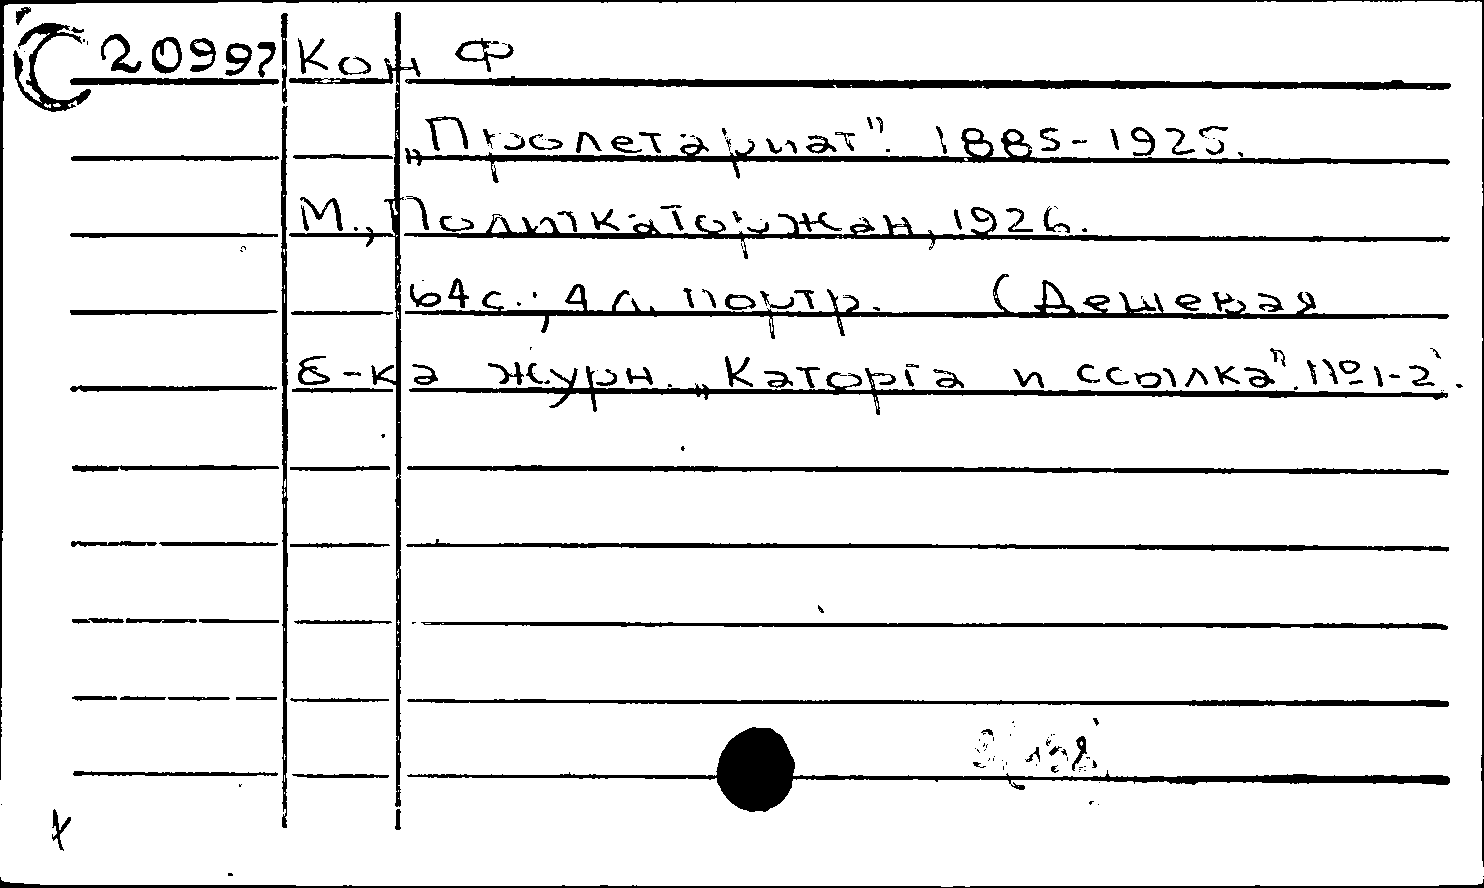 С 20997 Кон Ф
„Пролетариат". 1885-1925.
М., Политкаторжан, 1926.
64 с.; 4 л. портр. (Дешевая
б-ка журн. „Каторга и ссылка". №1-2.